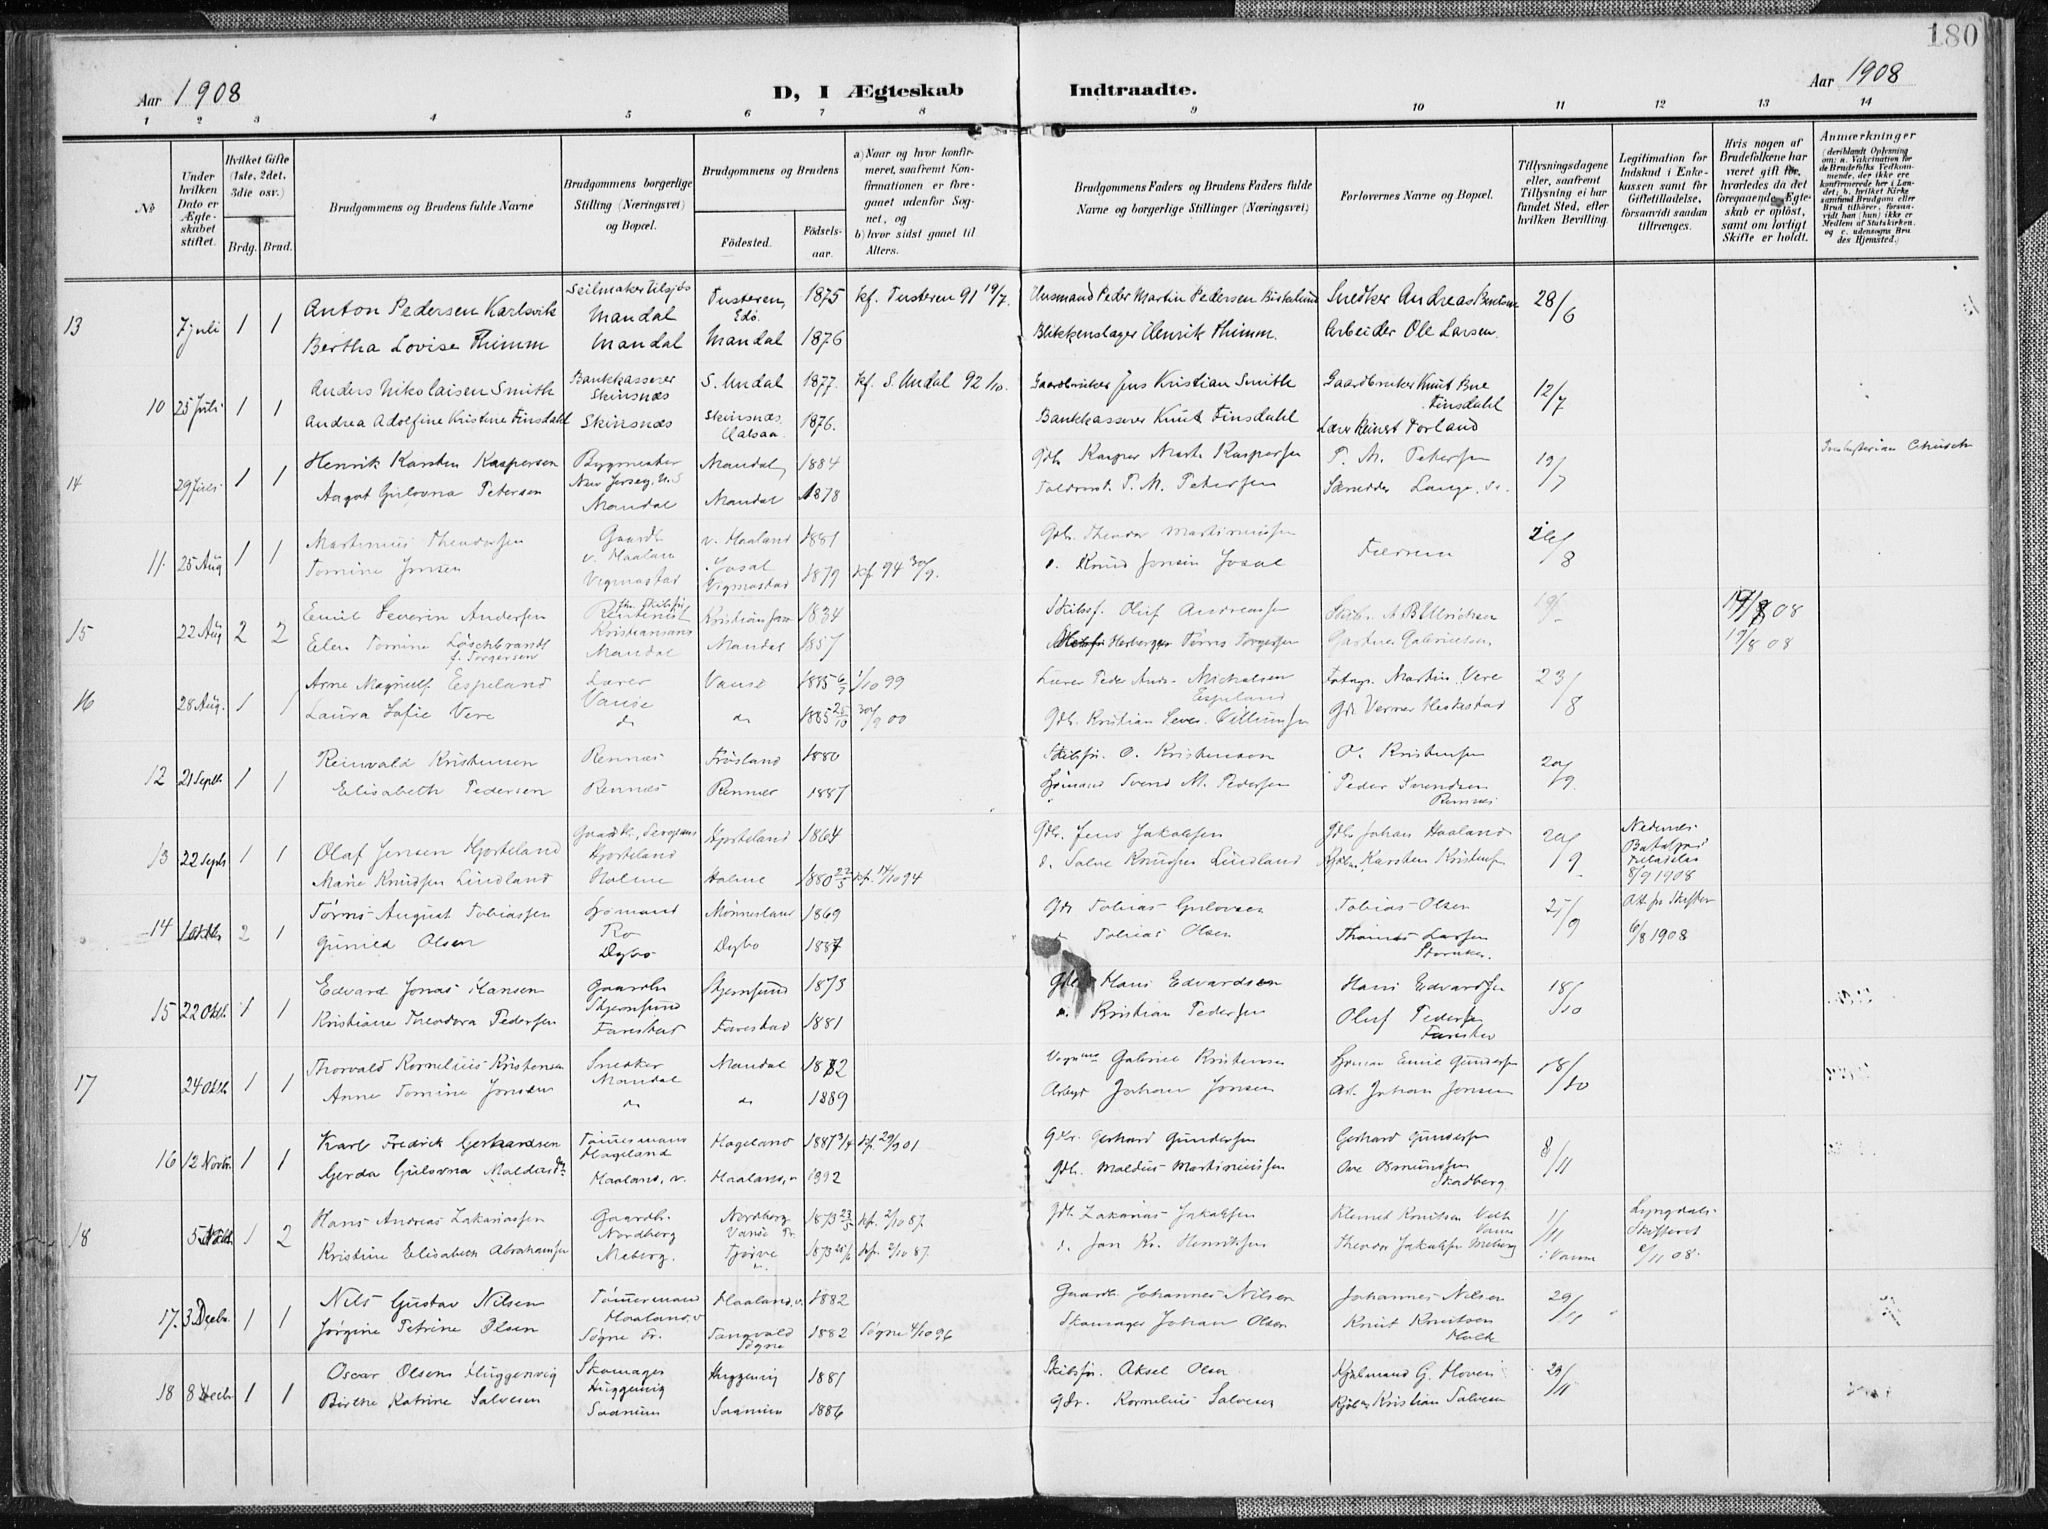 180
Aar 1908
D, I Ægteskab Indtraadte.
Aar 1908
1 2 3 4 5 6 7 8 9 10 11 12 13 14
No
Under hvilken Dato er Ægte-skabet stiftet.
Hvilket Gifte (1ste, 2det, 3die osv.)
Brdg. Brud.
Brudgommens og Brudens fulde Navne
Brudgommens borgerlige Stilling (Næringsvei) og Bopæl.
Brudgommens og Brudens
Fødested.
Fødsels-aar.
a) Naar og hvor konfir-meret, saafremt Kon-firmationen er fore-gaaet udenfor Sog-net, og
b) hvor sidst gaaet til Alters.
Brudgommens Faders og Brudens Faders fulde Navne og borgerlige Stillinger (Næringsvei)
Forlovernes Navne og Bopæl.
Tillysningsdagene eller, saafremt Tillysning ei har fundet Sted, efter hvilken Bevilling.
Legitimation for Indskud i Enke-kassen samt for Giftetilladelse, forsaavidt saadan tiltrænges.
Hvis nogen af Brudefolkene har været gift før, hvorledes da det foregaaende Ægte-skab er opløst, samt om lovligt Skifte er holdt.
Anmærkninger (deriblandt Oplysning om: a. Vakcination for de Brudefolks Vedkom-mende, der ikke ere konfirmerede her i Lan-det; b. hvilket Kirke-samfund Brudgom eller Brud tilhører, forsaa-vidt han (hun) ikke er Medlem af Statskirken, og c. udensogns Bru-des Hjemsted.)
13 7 juli 1 1 Anton Pedersen Karlsvik Seilmaker Mandal Tusteren, Edø 1875 kf. Tusteren 91 19/7. Husmand Peder Martin Pedersen Snedker Andreas 28/6
Bertha Lovise Thimm Mandal Mandal 1876 Blikkenslager Henrik Thimm. Arbeider Ole Larsen.
10 25 Juli 1 1 Anders Nikolaisen Smith Bankkasserer Skinsnæs S. Undal 1877. kf. S. Undal 92 /10. Gaardbruker Jens Kristian Smith Gaardbruker Knut Bue Finsdahl 12/7
Andrea Adolfine Kristine Finsdahl Skinsnæs Skinsnæs 1876. Bankkasserer Knut Finsdahl Lærer Reinert Torland
14 29 Juli 1 1 Henrik Karsten Kaspersen Bygmester New Jersey, U.S Mandal 1884 Gdb. Kasper Mart. Kaspersen P. M. Petersen 19/7
Aagot Gulovna Petersen Mandal Mandal 1878 P. M. Petersen
11. 25 Aug 1 1 Martinius Theodorsen Gaardb. v. Haaland 1881 Gdb. Theodor Martiniussen 26/8
Tomine Jonsen Vigmostad Josal Vigmostad 1879 kf. 94 30/9. Knud Jonsen Josal
15 22 Aug 2 2 Emil Severin Andersen Kristianssand 1834 Skibsf. Oluf Andreassen 19/ 08
Elen Tomine Löschbrandt f. Torgersen Mandal Mandal 1857 Tørris Torgersen Gartner Gabrielsen 19/8 08
16 28 Aug. 1 1 Arne Magnulf Espeland Lærer Vanse Vanse 1885 6/7 1/10 99 Lærer Peder Ands. Michalsen Espeland Martin Vere 23/8
Laura Sofie Vere do do 1885 25/10 30/9 00 Gdb. Kristian Verner Heskestad
12 21 Septb 1 1 Reinvald Kristensen Rennes Frøsland 1880 O. Kristensen O. Kristensen 20/9.
Elisabeth Pedersen Rennes Rennes 1887 Sømand Svend M. Pedersen Peder Svendsen Rennes
13 22 Septb 1 1 Olaf Jensen Hjorteland Gaardb., Sergeant Hjorteland Hjorteland 1864 Gdb. Jens Jakobsen Gdb. Johan Haaland 20/9 Nedenes Bataljons Tilladelse 8/9 1908
Marie Knudsen Lindland Holme Holme 1880 22/5 kf. 14/10 94 d. Salve Knudsen Lindland Karsten Kristensen
14 1 Oktb 2 1 Tørris August Tobiassen Sømand Ro Mønnesland 1869 Gdb Tobias Gulovsen Tobias Olsen 27/9 6/8 1908
Gunild Olsen Dybo Dybo 1887 d Tobias Olsen Thomas Larsen
15 22 Oktb. 1 1 Edvard Jonas Hansen Gaardbr Skjernsund Skjernsund 1873 Gdb Hans Edvardsen Hans Edvardsen 18/10
Kristiane Theodora Pedersen Farestad Farestad 1881 Kristian Pedersen Oluf Pedersen
17 24 Oktb. 1 1 Thorvald Kornelius Kristensen Snedker Mandal Mandal 1882 Gabriel Kristensen Emil Gundersen 18/10
Anne Tomine Jonsen do do 1889 Johan Jonsen Johan Jonsen
16 12 Novbr. 1 1 Karl Fredrik Gerhardsen Tømmermand Hageland Hageland 1887 3/4 kf. 29/9 01 Gdb. Gerhard Gundersen Gerhard Gundersen 8/11
Gerda Gulovna Haaland, v. Haaland, v 1892 Gdb. Martiniussen Ove Osmundsen Skadberg.
18 5 1 2 Hans Andreas Zakariassen Gaardb. Nordberg Nordberg Vanse 1873 23/5 kf. 2/10 87. Gdb Zakarias Jakobsen Klemet Knutsen 1/11 Lyngdals Skifteret 2/11 08.
Kristine Elisabeth Abrahamsen Meberg. Tjørve 1873 25/6 kf. 2/10 87. d. Jan Kr. Henriksen Theodor Jakobsen Meberg i Vanse
17. 3 Decbr. 1 1 Nils Gustav Nilsen Tømmermand Haaland, v Haaland, v. 1882 Gaardb. Johannes Nilsen Johannes Nilsen 29/11
Jørgine Petrine Olsen Søgne Pr. Tangvald Søgne 1882 Søgne 4/10 96 Skomager Johan Olsen Knut Knutsen Holte
18 8 Decb 1 1 Oscar Olsen Huggenvig Skomager Huggenvig Huggenvig 1881 Skibsfør. Aksel Olsen Kjøbmand G. Hoven 29/11
Birthe Katrine Salvesen Saanum Saanum 1886 Gdbr. Kornelius Salvesen Kristian Salvesen